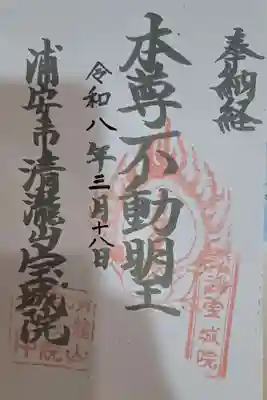 奉納経
本尊不動明王
令和八年三月十八日
浦安市清瀧山宝城院